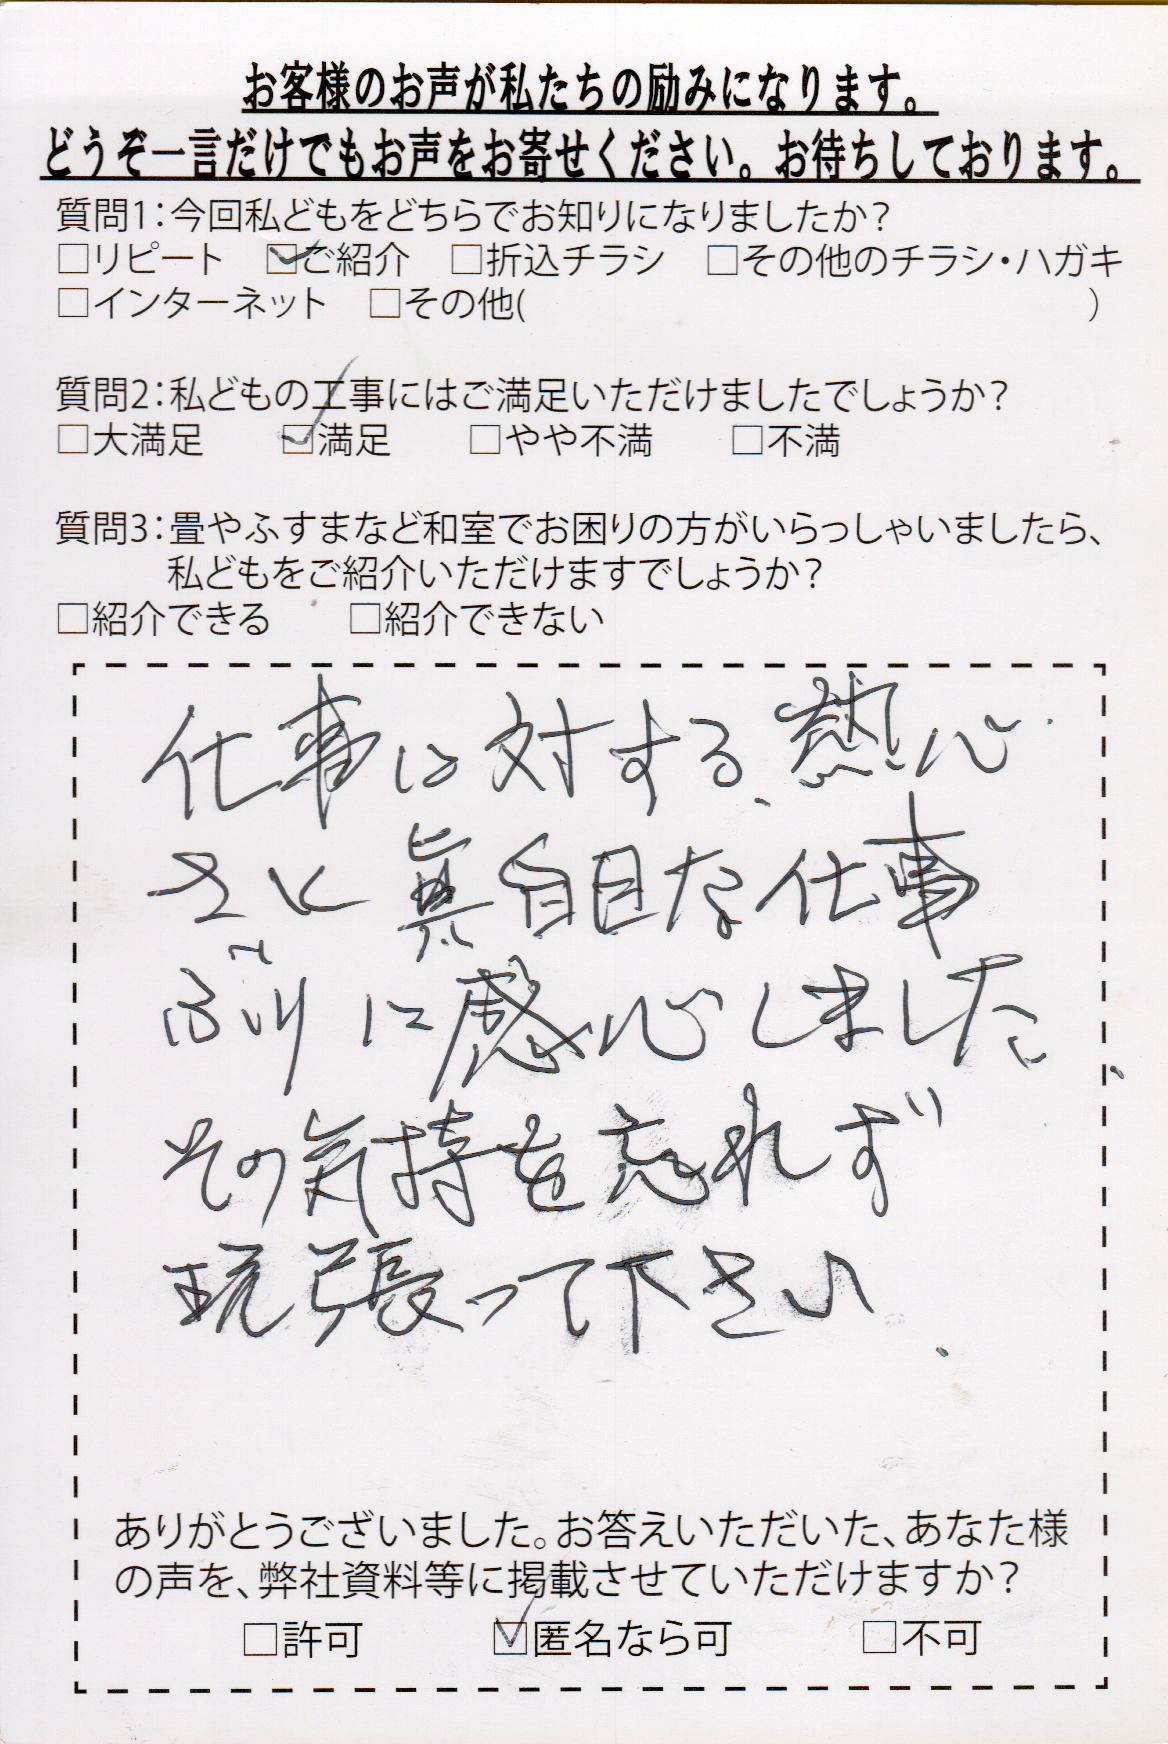 お客様のお声が私たちの励みになります。
どうぞ一言だけでもお声をお寄せください。お待ちしております。
質問1：今回私どもをどちらでお知りになりましたか？
□リピート ☑ご紹介 □折込チラシ □その他のチラシ・ハガキ
□インターネット □その他( )
質問2：私どもの工事にはご満足いただけましたでしょうか？
□大満足 ☑満足 □やや不満 □不満
質問3：畳やふすまなど和室でお困りの方がいらっしゃいましたら、
私どもをご紹介いただけますでしょうか？
□紹介できる □紹介できない
仕事に対する、熱心
さと真自目な仕事
ぶりに感心しました。
その気持を忘れず
頑張って下さい。
ありがとうございました。お答えいただいた、あなた様
の声を、弊社資料等に掲載させていただけますか？
□許可 ☑匿名なら可 □不可